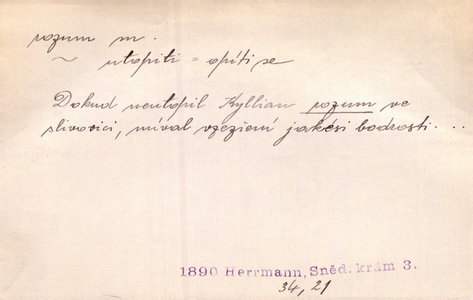 rozum m.
~ utopiti = opíti se
Dokud neutopil Kyllian rozum ve
slivovici, míval vzezření jakési bodrosti...
1890 Herrmann, Sněd. krám 3.
34, 21